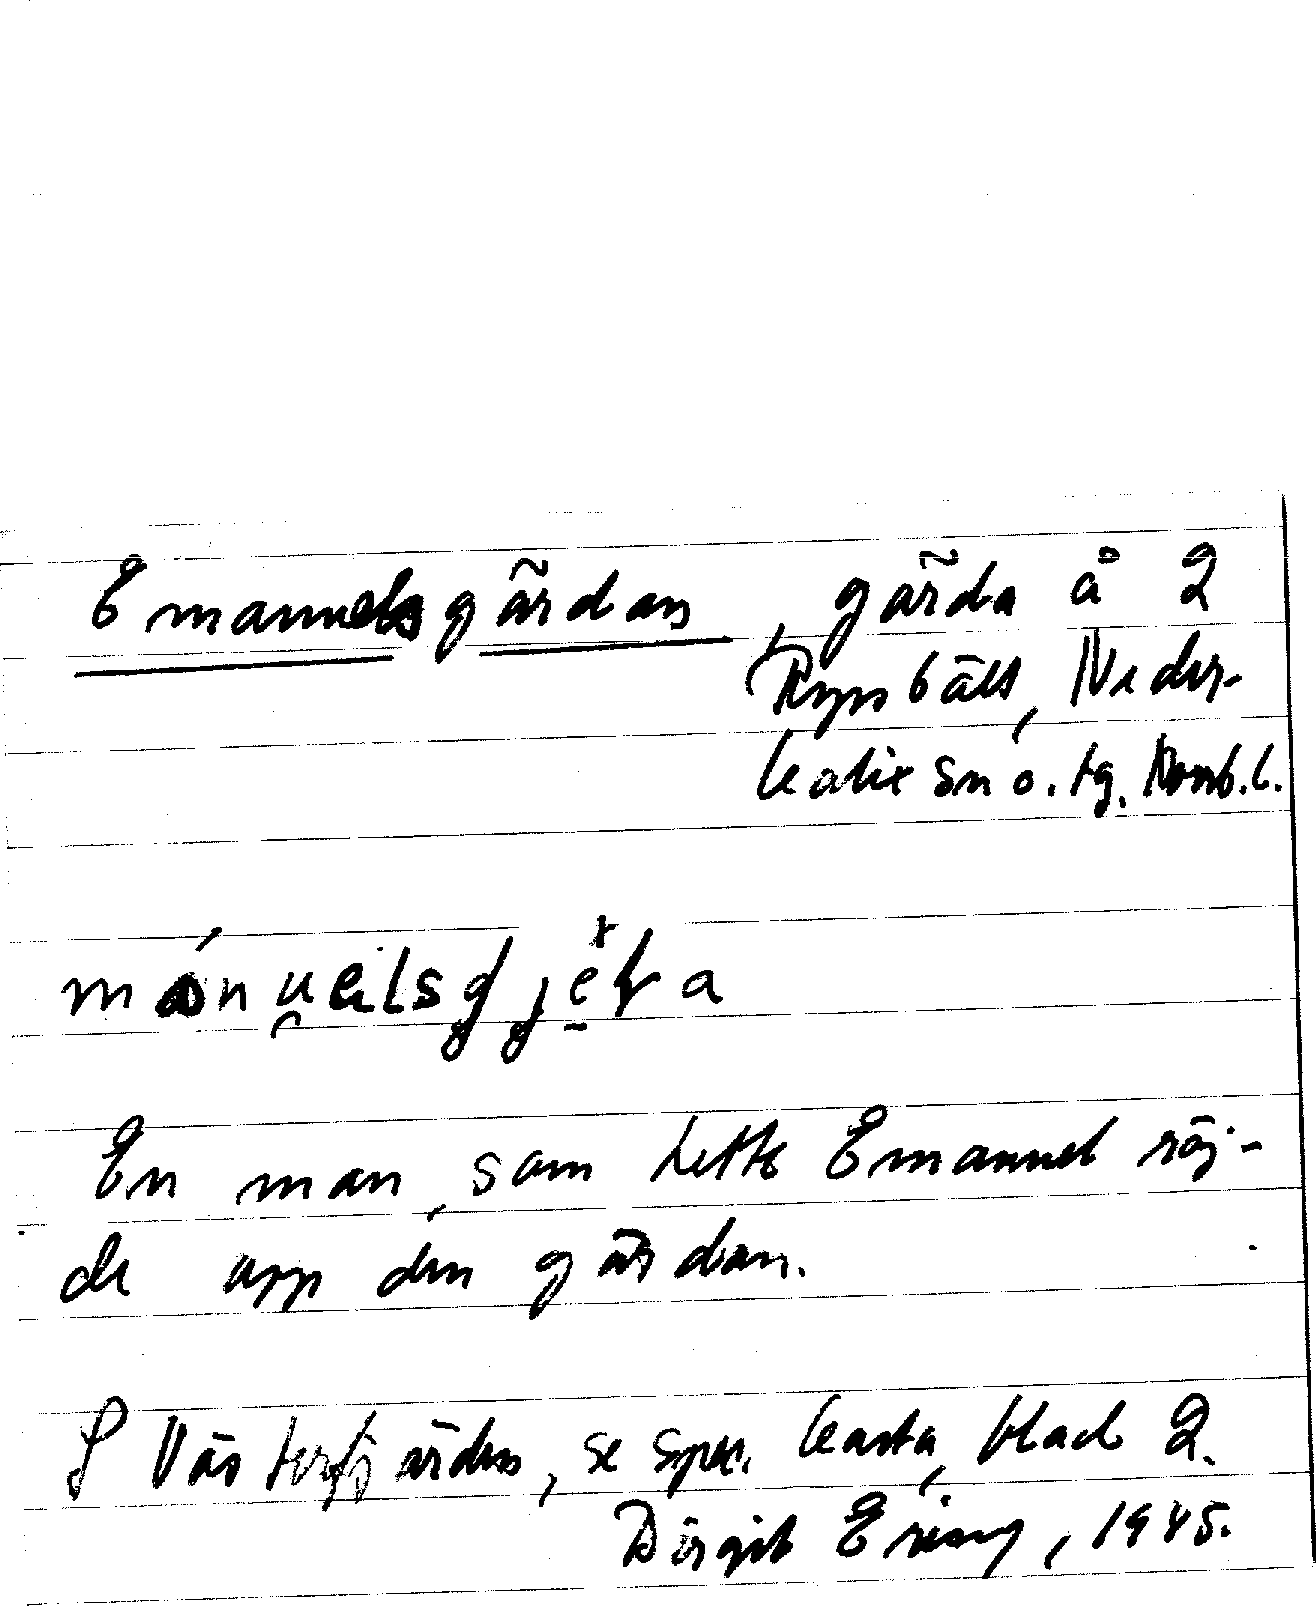 Emanuelsgärdan, gärda å 2
Ryssbält, Neder-
kalix sn o. tg. Norrb. l.
En man, som hette Emanuel röj-
de upp den gärdan.
S Västerfjärden, se spec. karta, blad 2.
Birgit Ering, 1945.